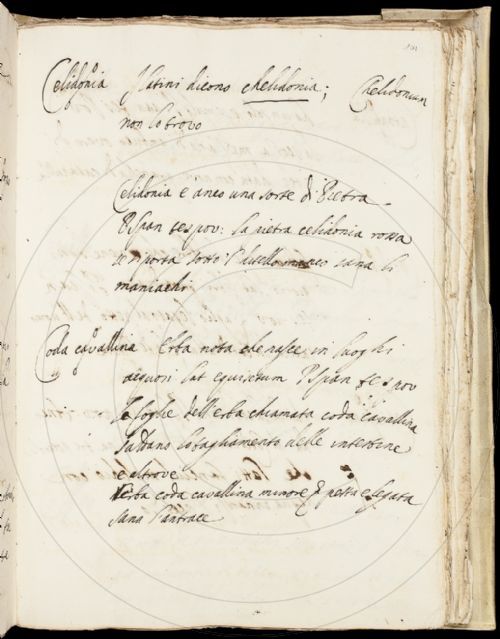 Celidonia I latini dicono chelidonia; Chelidonium
non lo trovo
Celidonia e anco una sorte di Pietra
P. Ispan tes pov: la pietra celidonia rossa
se si porta sotto l'ditello manco sana li
maniachi
Coda cavallina Erba nota che nasce in luoghi
acquosi lat equisetum P Ispan tes pov
le foglie dell'erba chiamata coda cavallina
saldano lo tagliamento delle interiora
e altrove
Herba coda cavallina minore pesta e legata
sana l'antrace